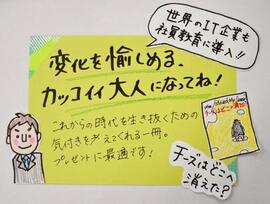 世界のIT企業も
社員教育に導入!!
変化を愉しめる、
カッコイイ大人になってね!
これからの時代を生き抜くための
気付きを与えてくれる一冊。
プレゼントに最適です!
チーズはどこへ
消えた?